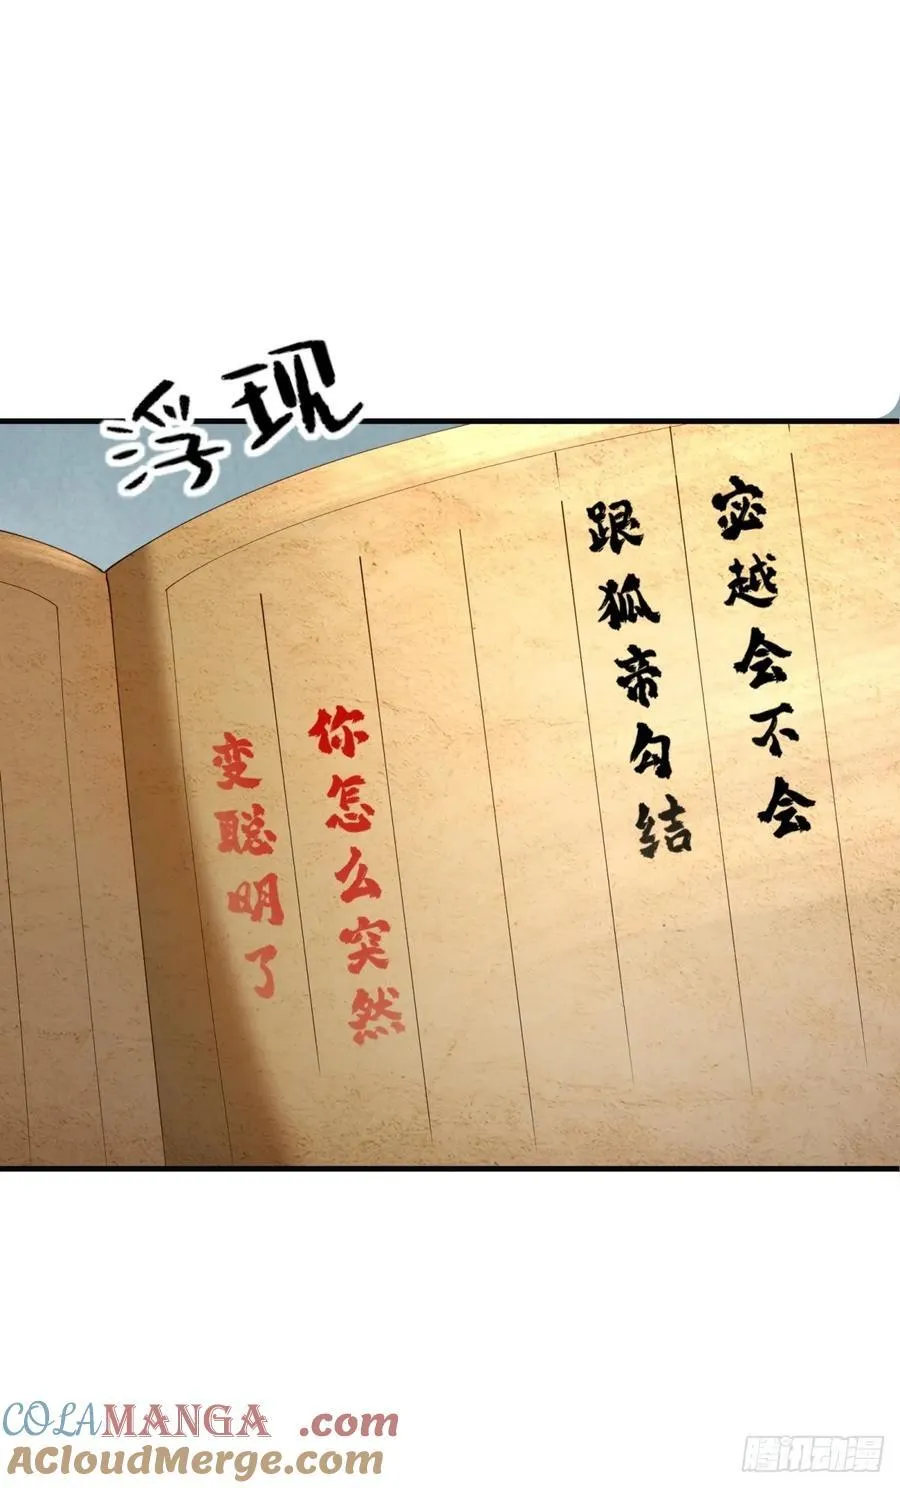 浮现
宓越会不会
跟狐帝勾结
你怎么突然
变聪明了
COLAMANGA.com
ACloudMerge.com
腾讯动漫